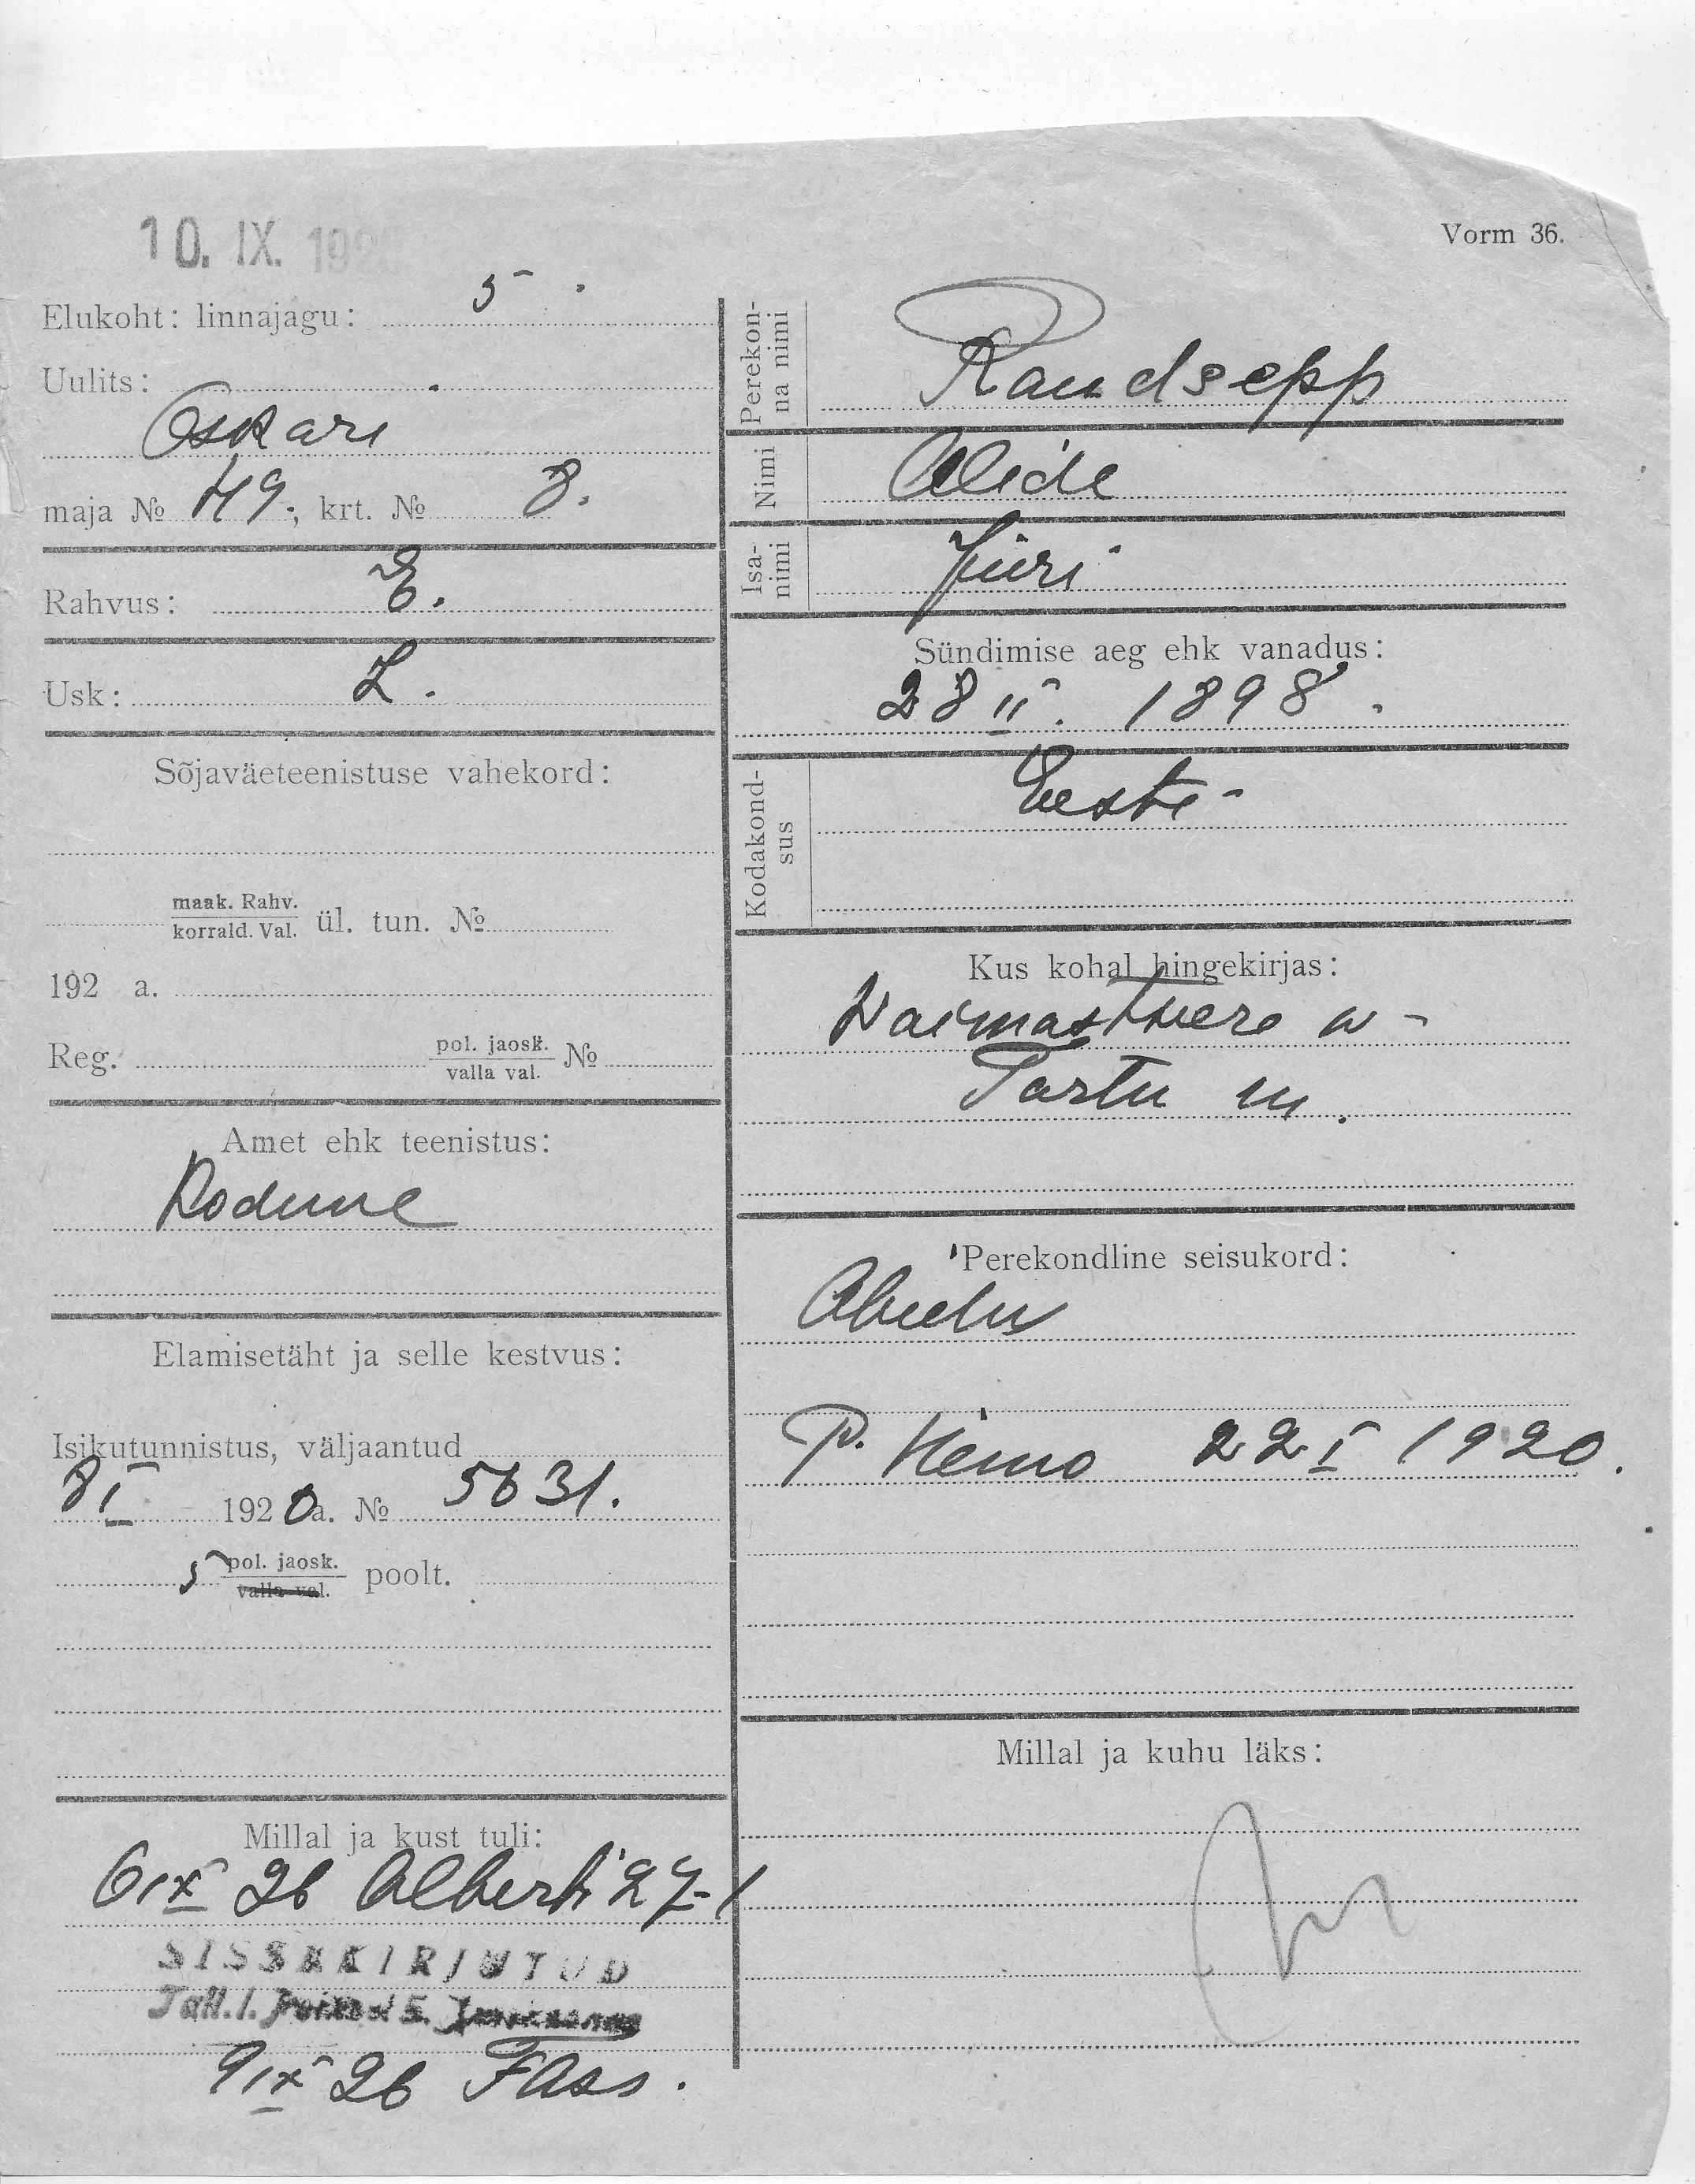 10. IX. 192
Vorm 36.
Elukoht: linnajagu: 5.
Uulits:
Oskari
maja № 49., krt. № 8.
Rahvus: E.
Usk: L.
Sõjaväeteenistuse vahekord:
maak. Rahv.
korrald. Val. ül. tun. №
192 a.
Reg. pol. jaosk.
valla val. №
Amet ehk teenistus:
Kodune
Elamisetäht ja selle kestvus:
Isikutunnistus, väljaantud
8 I 1920 a. № 5631.
5 pol. jaosk.
valla val. poolt.
Millal ja kust tuli:
6 IX 26 Alberti 27-1
SISSEKIRJUTUD
Tall.
9 IX 26 FAss.
Perekon-
na nimi
Raudsepp
Nimi
Alide
Isa-
nimi
Jüri
Sündimise aeg ehk vanadus:
28 II. 1898.
Kodakond-
sus
Eesti-
Kus kohal hingekirjas:
Waimastwere w-
Tartu m.
Perekondline seisukord:
Abielus
P. Heino 22 I 1920.
Millal ja kuhu läks: